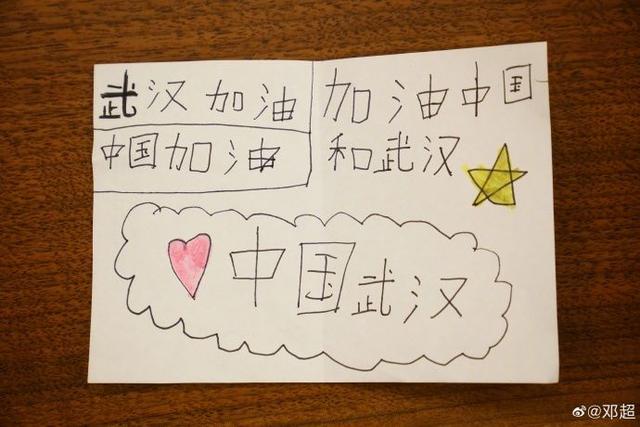 武汉加油
中国加油
加油中国
和武汉
中国武汉
@邓超